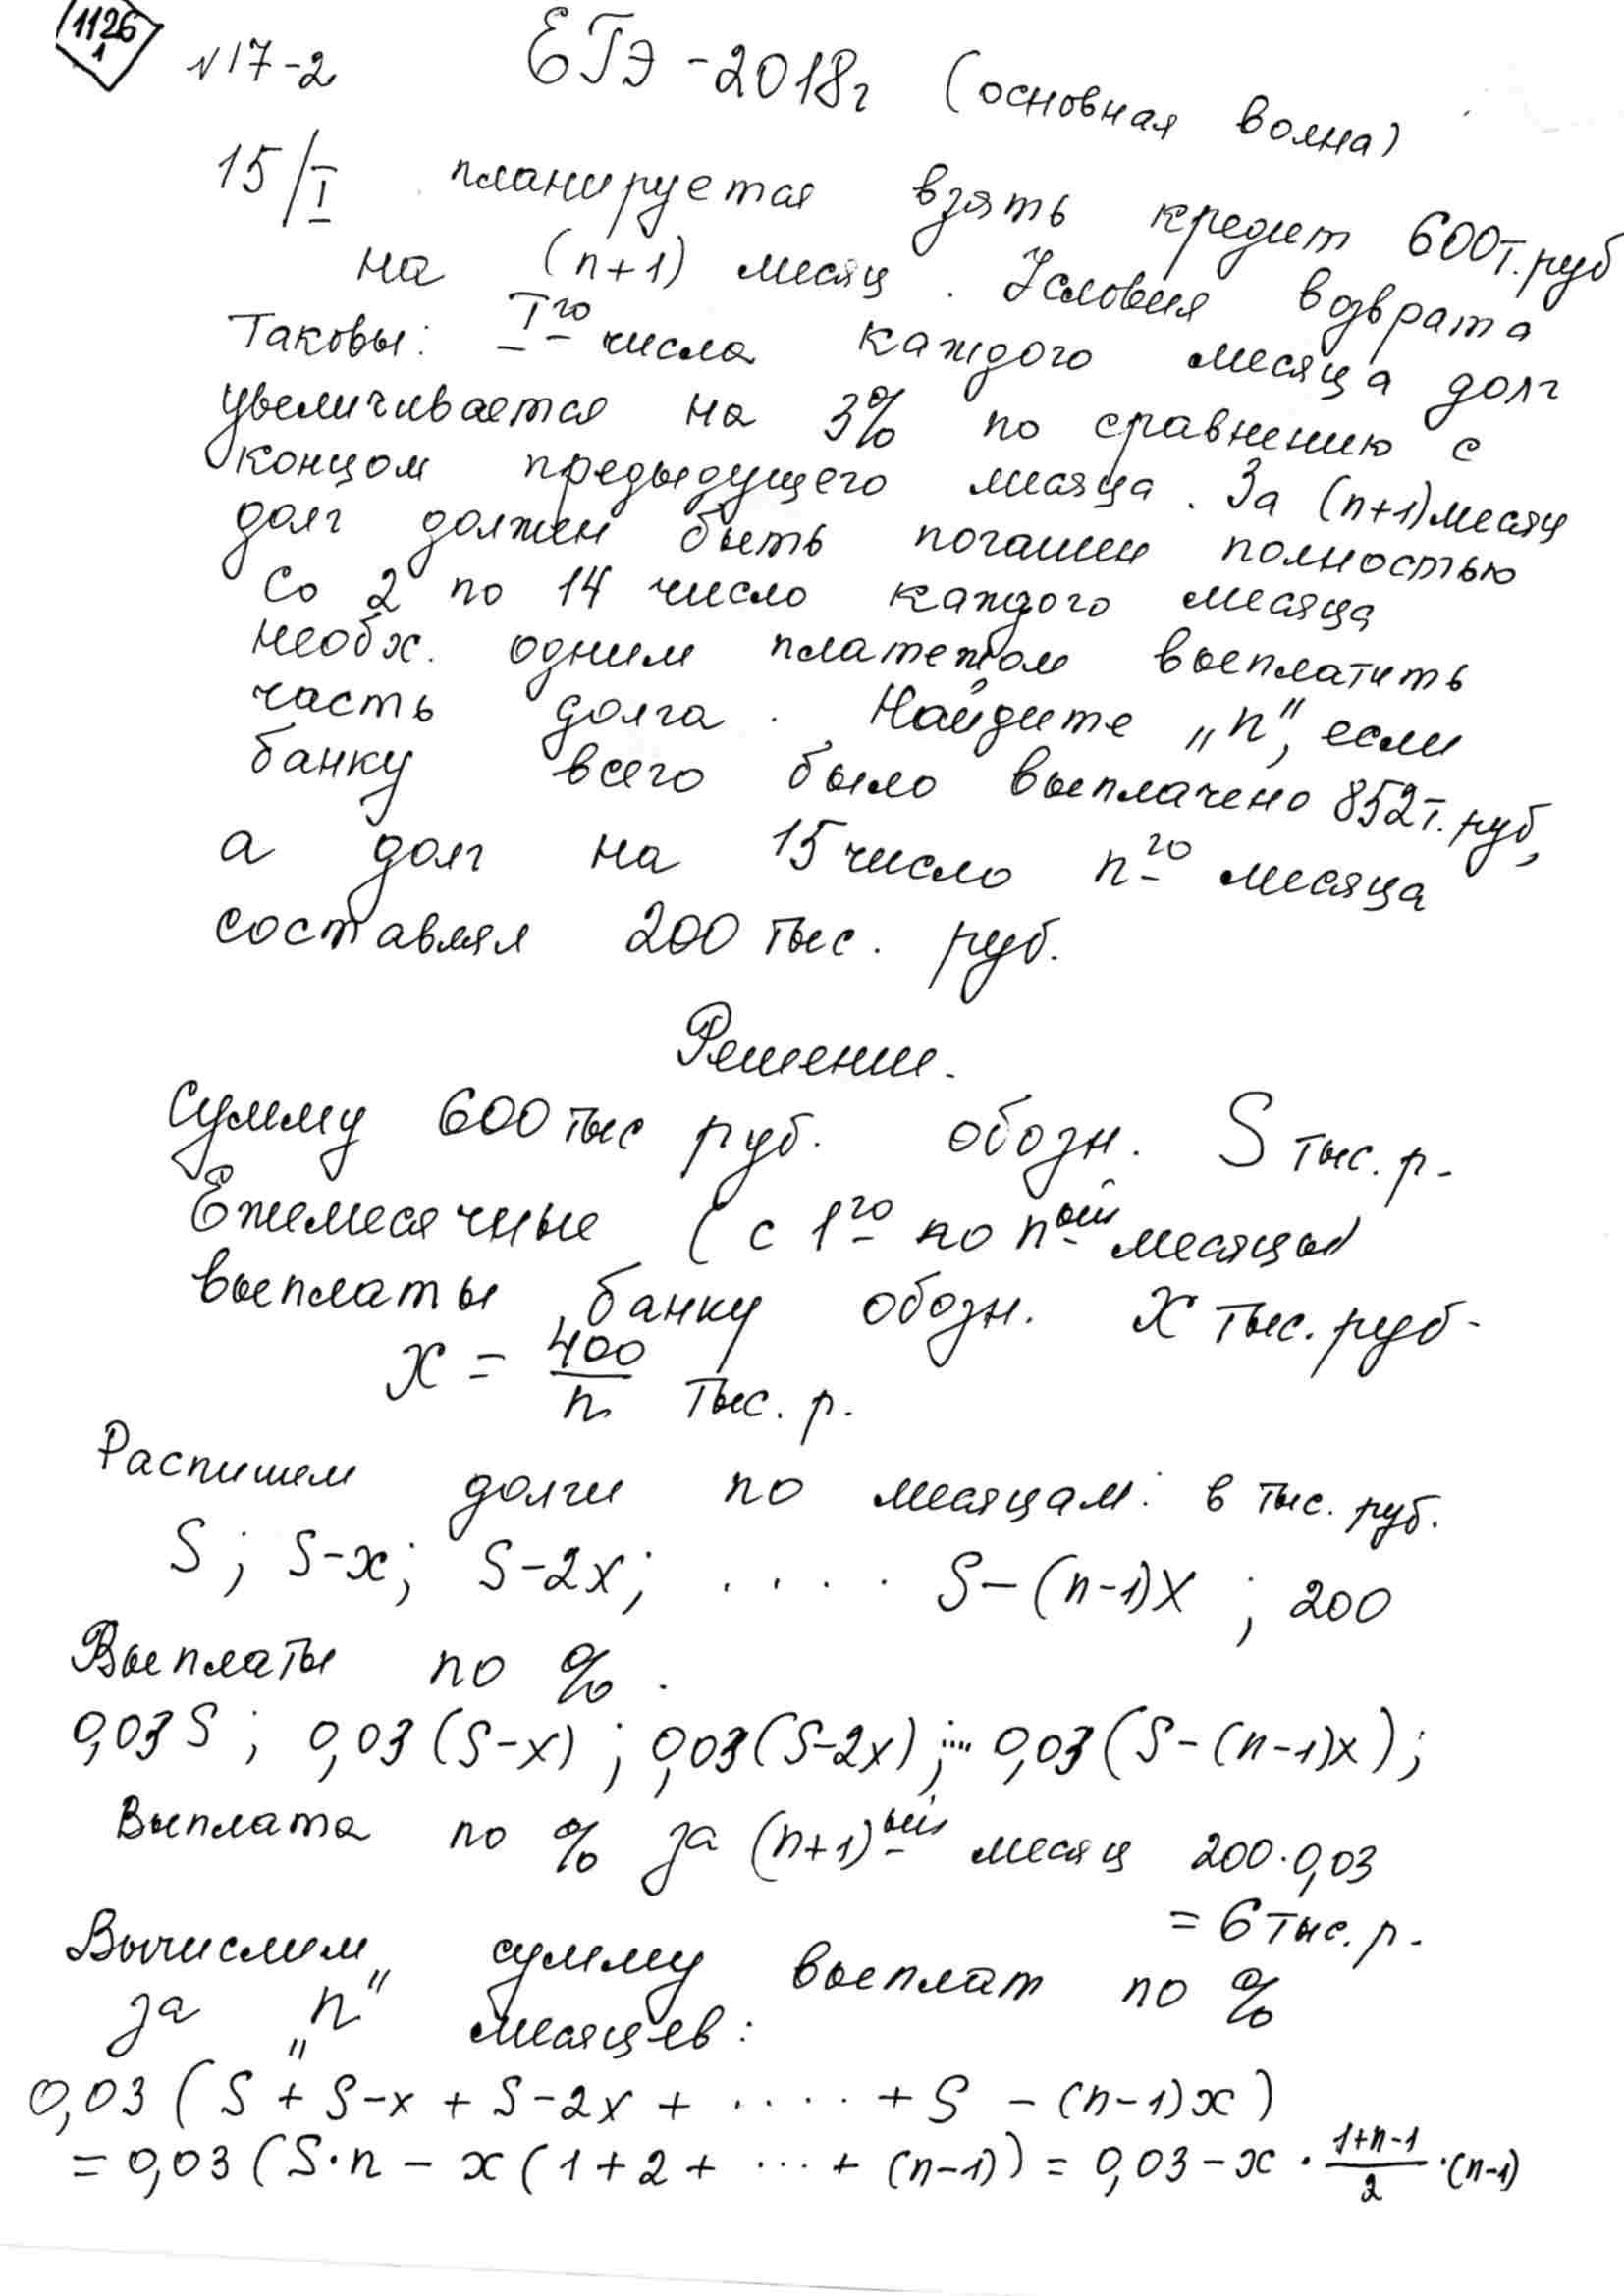 1126
1
N17-2 ЕГЭ-2018г (основная волна)
15/I планируется взять кредит 600т.руб
на (n+1) месяц. Условия возврата
таковы: I го числа каждого месяца долг
увеличивается на 3% по сравнению с
концом предыдущего месяца. За (n+1) месяц
долг должен быть погашен полностью
Со 2 по 14 число каждого месяца
необх. одним платежом выплатить
часть долга. Найдите „n", если
банку всего было выплачено 852т.руб,
а долг на 15 число n го месяца
составлял 200 тыс. руб.
Решение.
Сумму 600 тыс руб. обозн. S тыс. р.
Ежемесячные (с 1го по nый месяцы)
выплаты банку обозн. x тыс. руб.
x = 400/n тыс. р.
Распишем долги по месяцам: в тыс. руб.
S; S-x; S-2x; .... S-(n-1)x; 200
Выплаты по %.
0,03S; 0,03(S-x); 0,03(S-2x);... 0,03(S-(n-1)x);
Выплата по % за (n+1)ый месяц 200·0,03
= 6 тыс. р.
Вычислим сумму выплат по %
за „n" месяцев:
0,03(S + S-x + S-2x + ···· + S - (n-1)x)
= 0,03(S·n - x(1+2+ ··· + (n-1)) = 0,03 - x · (1+n-1)/2 · (n-1)